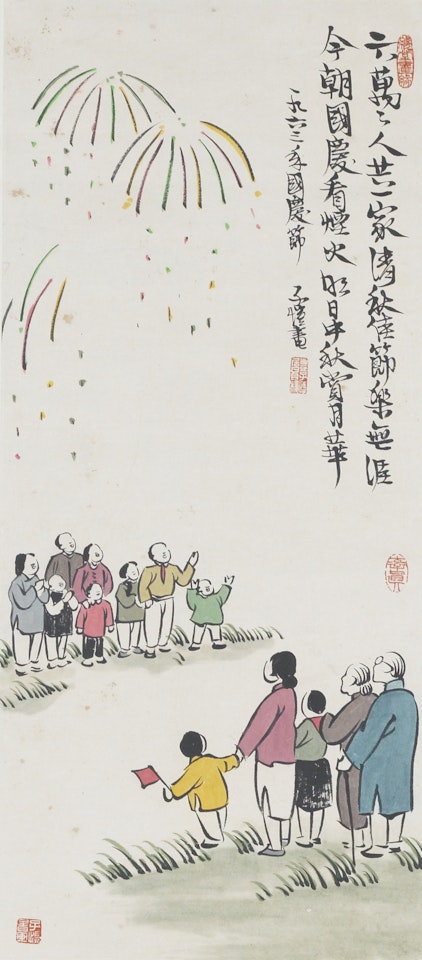 六萬〻人共一家清秋佳節樂無涯
今朝國慶看煙火明日中秋賞月華
一九六三年國慶節
子愷畫